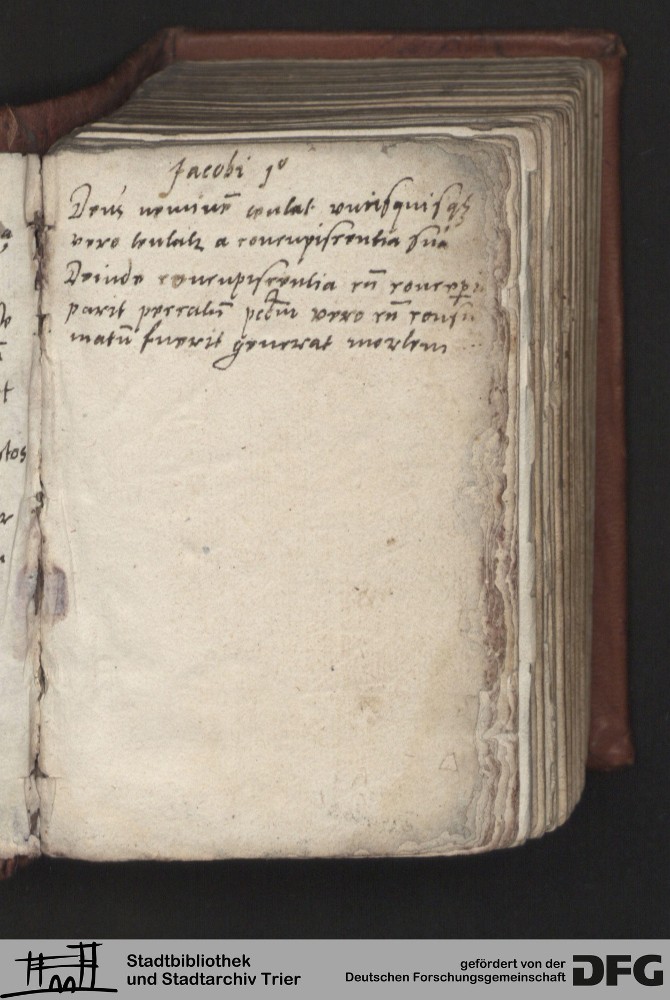 Jacobi 1º
Deus neminē tentat unusquisqȝ
vero tentatꝛ a concupiscentia sua
Deinde concupiscentia cū concepi
parit peccatū pctm̄ vero cū consū
matū fuerit generat mortem
Stadtbibliothek
und Stadtarchiv Trier
gefördert von der
Deutschen Forschungsgemeinschaft
DFG